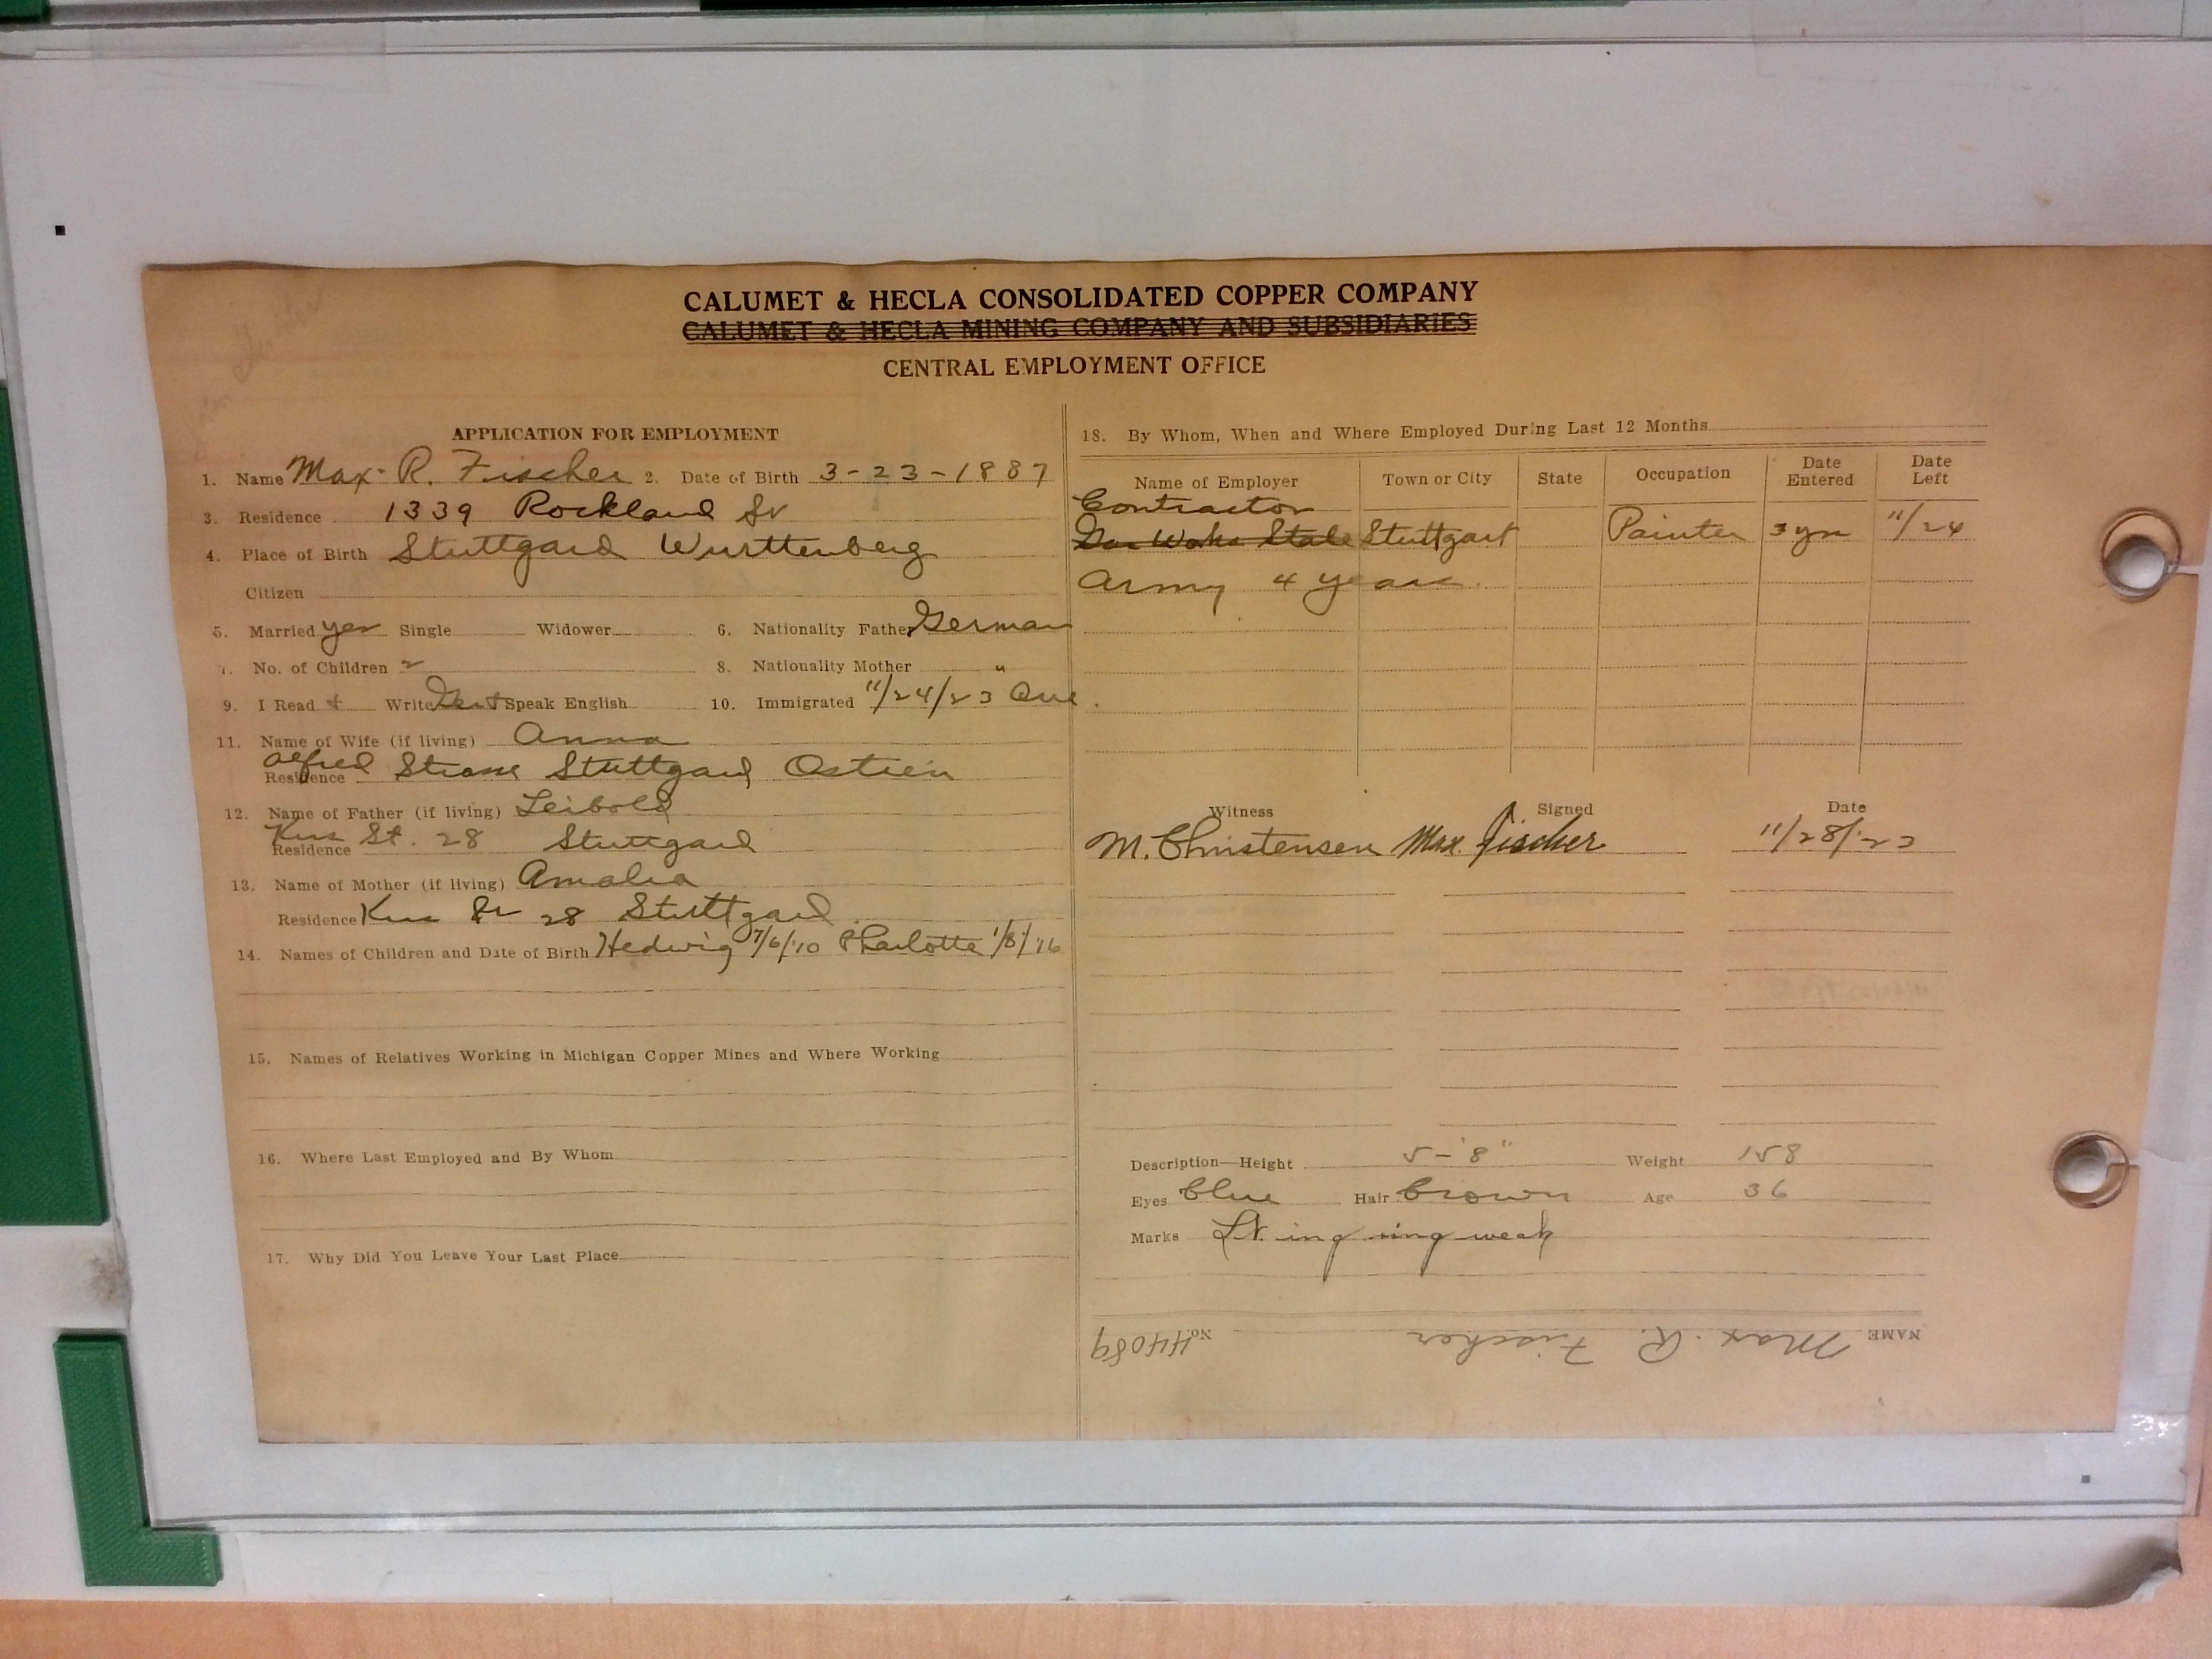 CALUMET & HECLA CONSOLIDATED COPPER COMPANY
CALUMET & HECLA MINING COMPANY AND SUBSIDIARIES
CENTRAL EMPLOYMENT OFFICE
APPLICATION FOR EMPLOYMENT
1. Name Max. R. Fischer 2. Date of Birth 3-23-1887
3. Residence 1339 Rockland St
4. Place of Birth Stuttgard Wurttenberg
Citizen
5. Married yes Single Widower 6. Nationality Father German
7. No. of Children 2 8. Nationality Mother "
9. I Read + Write Speak English 10. Immigrated 11/24/23
11. Name of Wife (if living) Anna
Residence Alfred Strasse Stuttgard
12. Name of Father (if living) Leibold
Residence St. 28 Stuttgard
13. Name of Mother (if living) Amalia
Residence St 28 Stuttgard
14. Names of Children and Date of Birth Hedwig 7/6/10 Charlotte 1/8/16
15. Names of Relatives Working in Michigan Copper Mines and Where Working
16. Where Last Employed and By Whom
17. Why Did You Leave Your Last Place
18. By Whom, When and Where Employed During Last 12 Months
Name of Employer Town or City State Occupation Date Entered Date Left
Contractor
Stuttgart Painter 3 yrs 11/24
Army 4 years.
Witness Signed Date
M. Christensen Max. Fischer 11/28/23
Description—Height 5-'8" Weight 158
Eyes blue Hair brown Age 36
Marks Lt. ing ring weak
NAME Max. R. Fischer No. 44089